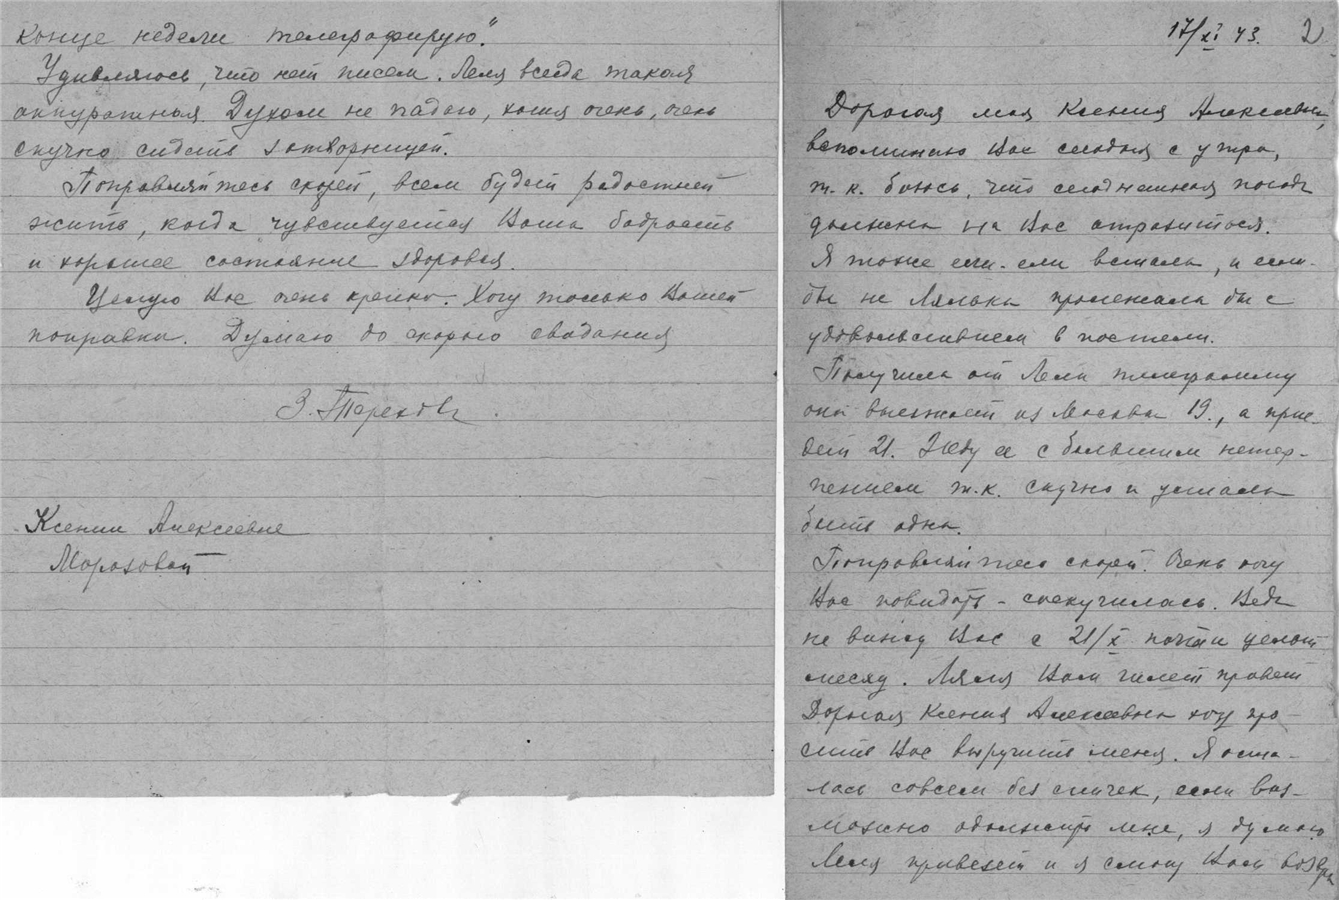 конце недели телеграфирую."
Удивляюсь, что нет писем. Леля всегда такая
аккуратная. Духом не падаю, хотя очень, очень
скучно сидеть затворницей.
Поправляйтесь скорей, всем будет радостней
жить, когда чувствуется Ваша бодрость
и хорошее состояние здоровья.
Целую Вас очень крепко. Хочу только Вашей
поправки. Думаю до скорого свидания
З. Терехова.
Ксении Алексеевне
Морозовой
17/XI 43. 2
Дорогая моя Ксения Алексеевна,
вспоминаю Вас сегодня с утра,
т.к. боюсь, что сегодняшняя погода
должна на Вас отразиться.
Я тоже еле-еле встала, и если-
бы не Лялька пролежала бы с
удовольствием в постели.
Получила от Лели телеграмму
она выезжает из Москвы 19., а прие-
дет 21. Жду ее с большим нетер-
пением т.к. скучно и устала
быть одна.
Поправляйтесь скорей. Очень хочу
Вас повидать - соскучилась. Ведь
не вижу Вас с 21/X почти целый
месяц. Ляля Вам шлет привет
Дорогая Ксения Алексеевна хочу про-
сить Вас выручить меня. Я оста-
лась совсем без спичек, если воз-
можно одолжите мне, я думаю
Леля привезет и я смогу Вам возвра